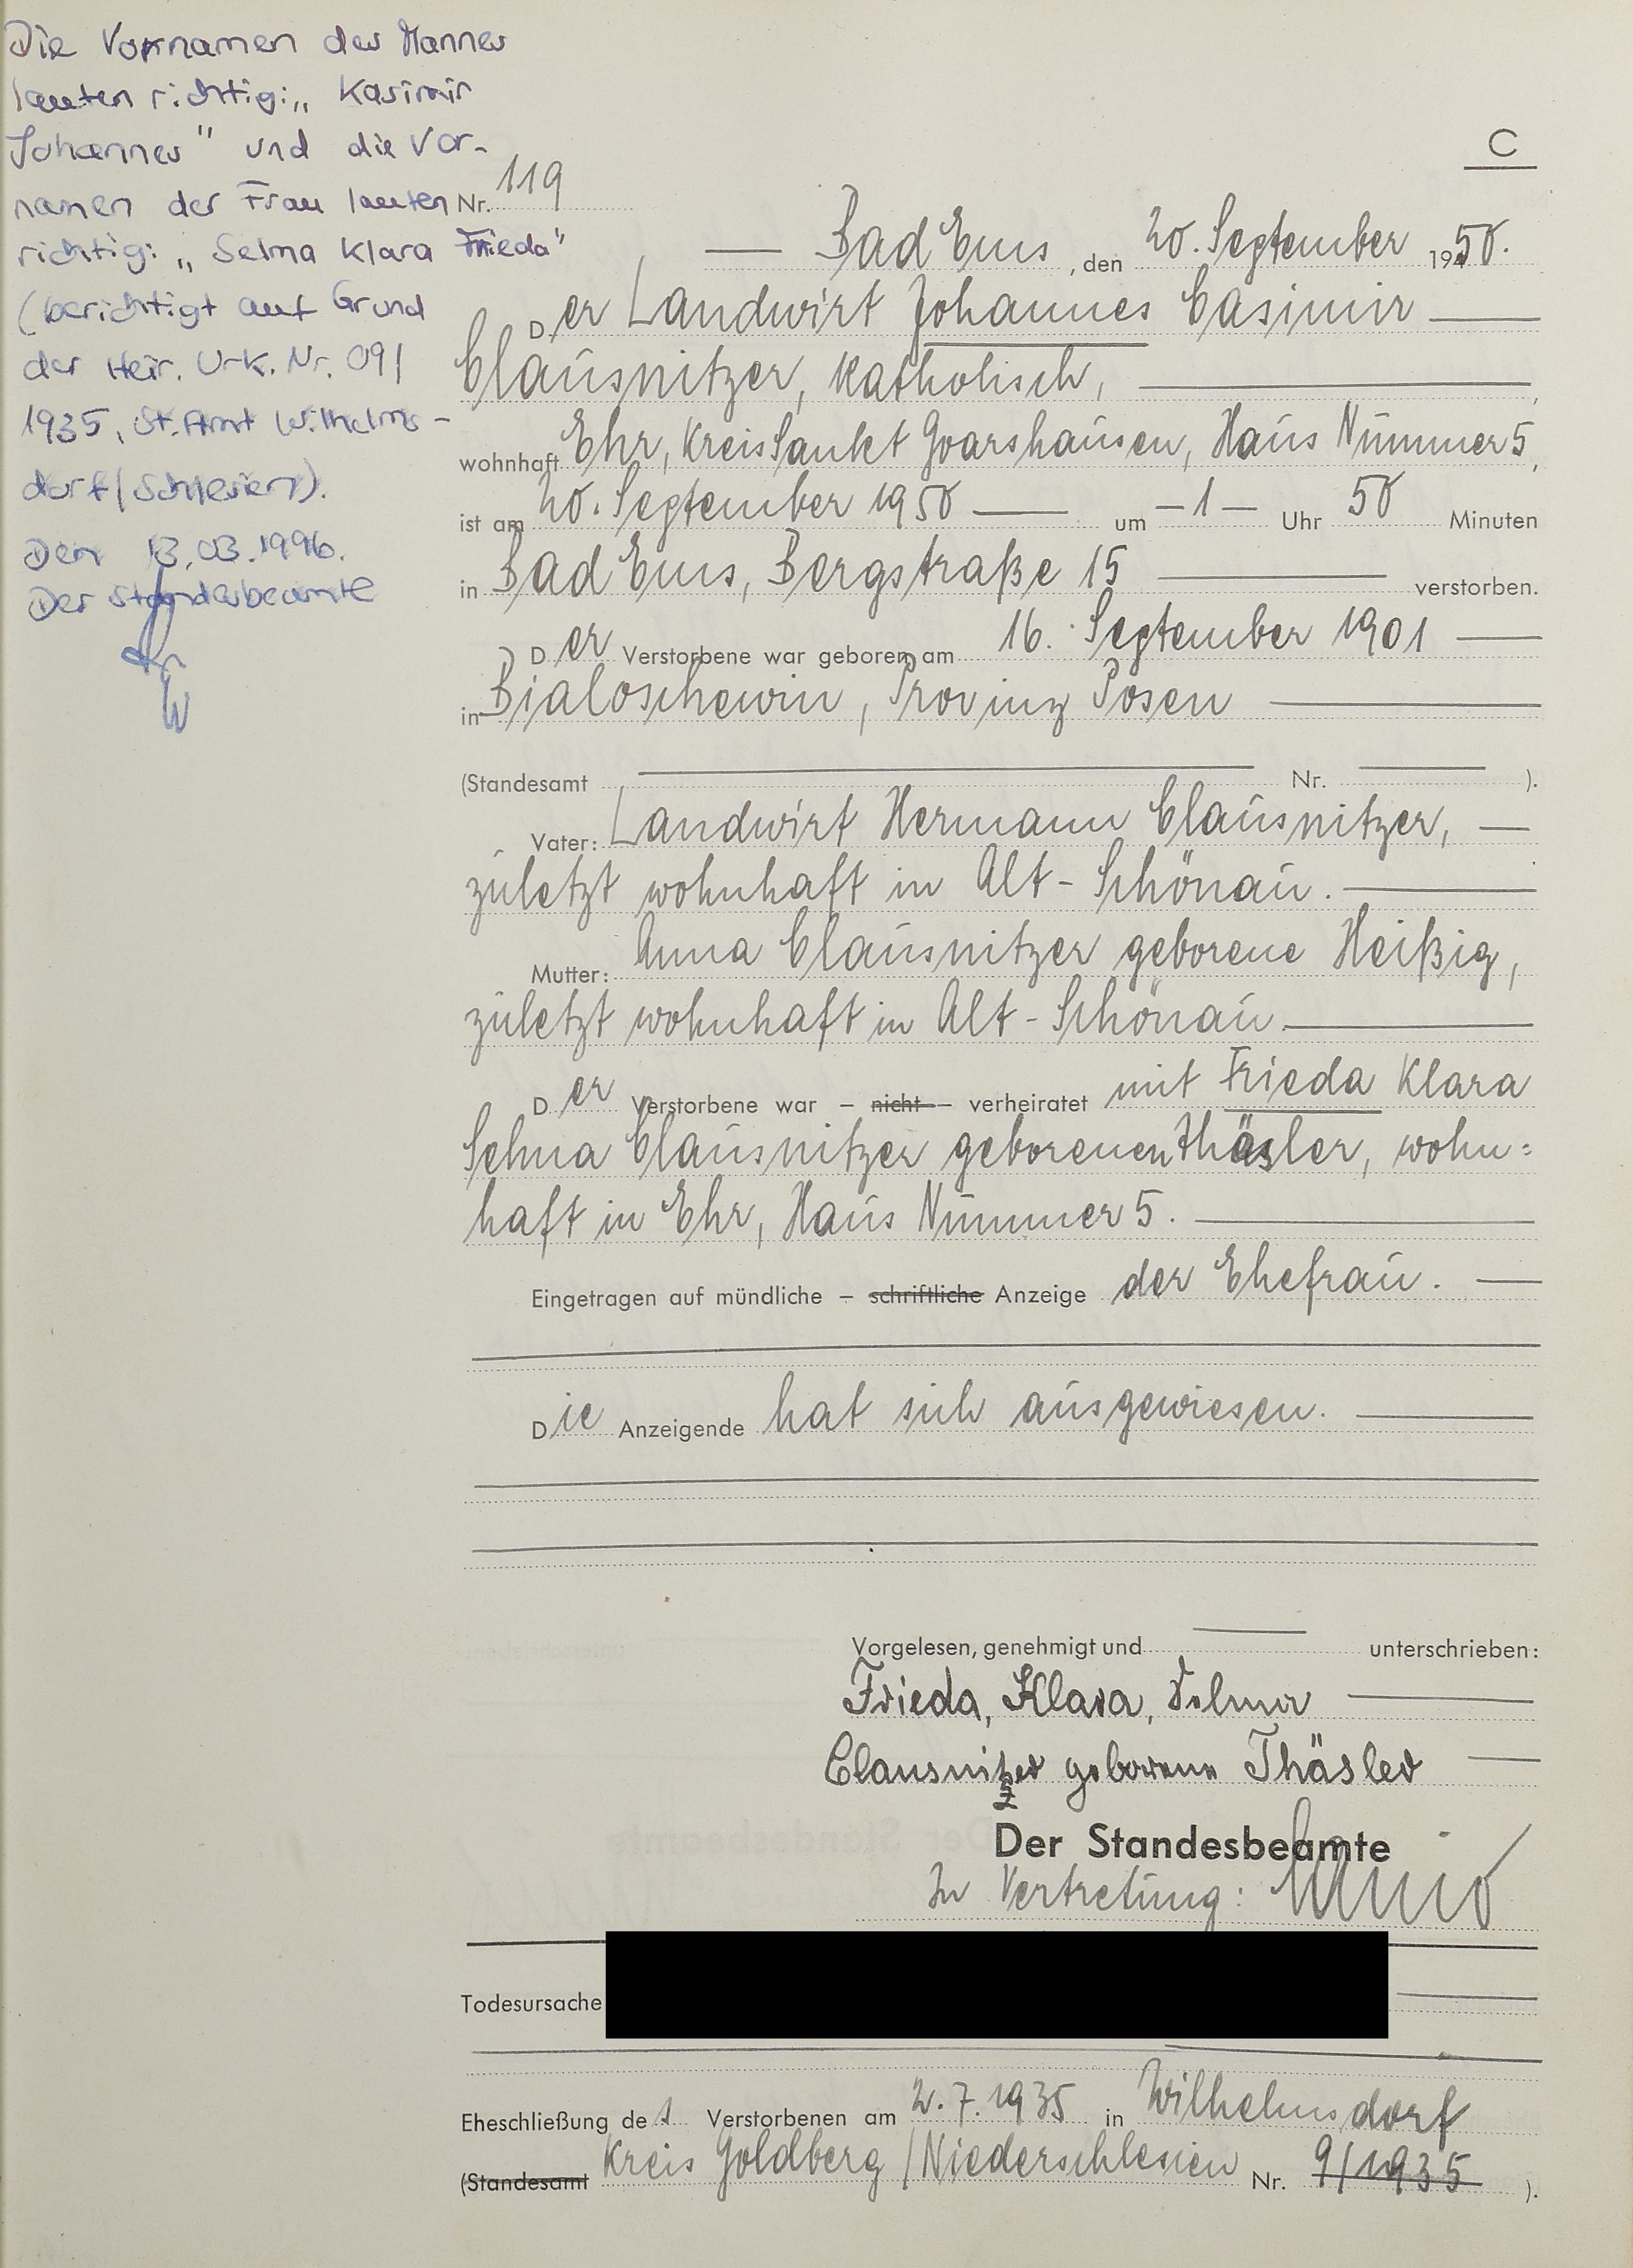 Die Vornamen des Mannes
lauten richtig: „Kasimir
Johannes" und die Vor-
namen der Frau lauten
richtig: „Selma Klara Frieda"
(berichtigt auf Grund
der Heir. Urk. Nr. 09/
1935, St. Amt Wilhelms-
dorf/Schlesien).
Den 13.03.1996.
Der Standesbeamte
C
Nr. 119
Bad Ems, den 20. September 1950.
Der Landwirt Johannes Casimir
Clausnitzer, katholisch,
wohnhaft Ehr, Kreis Sankt Goarshausen, Haus Nummer 5,
ist am 20. September 1950 um -1- Uhr 50 Minuten
in Bad Ems, Bergstraße 15 verstorben.
Der Verstorbene war geboren am 16. September 1901
in Bialoschewin, Provinz Posen
(Standesamt Nr. ).
Vater: Landwirt Hermann Clausnitzer,
zuletzt wohnhaft in Alt-Schönau.
Mutter: Anna Clausnitzer geborene Heißig,
zuletzt wohnhaft in Alt-Schönau
Der Verstorbene war – nicht – verheiratet mit Frieda Klara
Selma Clausnitzer geborenen Thäsler, wohn=
haft in Ehr, Haus Nummer 5.
Eingetragen auf mündliche – schriftliche Anzeige der Ehefrau.
Die Anzeigende hat sich ausgewiesen.
Vorgelesen, genehmigt und unterschrieben:
Frieda, Klara, Selma
Clausnitzer geborene Thäsler
Der Standesbeamte
In Vertretung:
Todesursache
Eheschließung des Verstorbenen am 2.7.1935 in Wilhelmsdorf
(Standesamt Kreis Goldberg/Niederschlesien Nr. 9/1935 ).